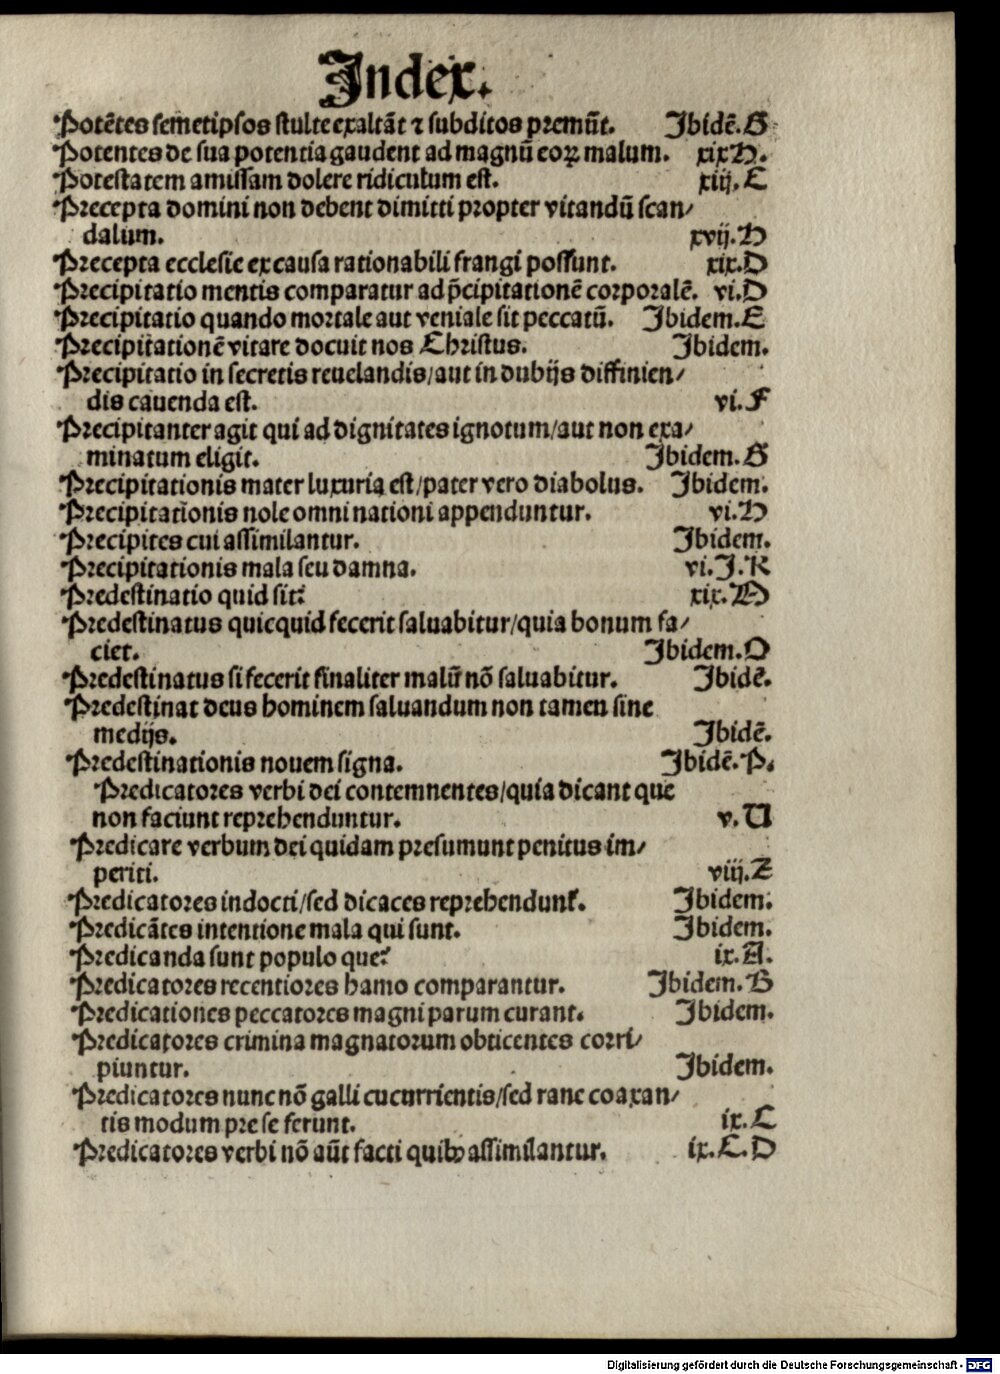 Index.
Potētes semetipsos stulte exaltāt ⁊ subditos premūt. Ibidē. G
Potentes de sua potentia gaudent ad magnū eoꝝ malum. xix H.
Potestatem amissam dolere ridiculum est. xiij. C
Precepta domini non debent dimitti propter vitandū scan/
dalum. xvij. H
Precepta ecclesie ex causa rationabili frangi possunt. xix. D
Precipitatio mentis comparatur ad p̄cipitationē corporalē. vi. D
Precipitatio quando mortale aut veniale sit peccatū. Ibidem. E
Precipitationē vitare docuit nos Christus. Ibidem.
Precipitatio in secretis reuelandis/aut in dubijs diffinien/
dis cauenda est. vi. F
Precipitanter agit qui ad dignitates ignotum/aut non exa/
minatum eligit. Ibidem. G
Precipitationis mater luxuria est/pater vero diabolus. Ibidem.
Precipitationis nole omni nationi appenduntur. vi. H
Precipites cui assimilantur. Ibidem.
Precipitationis mala seu damna. vi. J. K
Predestinatio quid sit? xix.
Predestinatus quicquid fecerit saluabitur/quia bonum fa/
ciet. Ibidem. O
Predestinatus si fecerit finaliter malū nō saluabitur. Ibidē.
Predestinat deus hominem saluandum non tamen sine
medijs. Ibidē.
Predestinationis nouem signa. Ibidē. P.
Predicatores verbi dei contemnentes/quia dicant que
non faciunt reprehenduntur. v. U
Predicare verbum dei quidam presumunt penitus im/
periti. viij. Z
Predicatores indocti/sed dicaces reprehendunt̉. Ibidem.
Predicātes intentione mala qui sunt. Ibidem.
Predicanda sunt populo que? ix. A.
Predicatores recentiores hamo comparantur. Ibidem. B
Predicationes peccatores magni parum curant. Ibidem.
Predicatores crimina magnatorum obticentes corri/
piuntur. Ibidem.
Predicatores nunc nō galli cucurrientis/sed rane coaxan/
tis modum pre se ferunt. ix. C
Predicatores verbi nō aūt facti quibꝰ assimilantur. ix. C. D
Digitalisierung gefördert durch die Deutsche Forschungsgemeinschaft - DFG